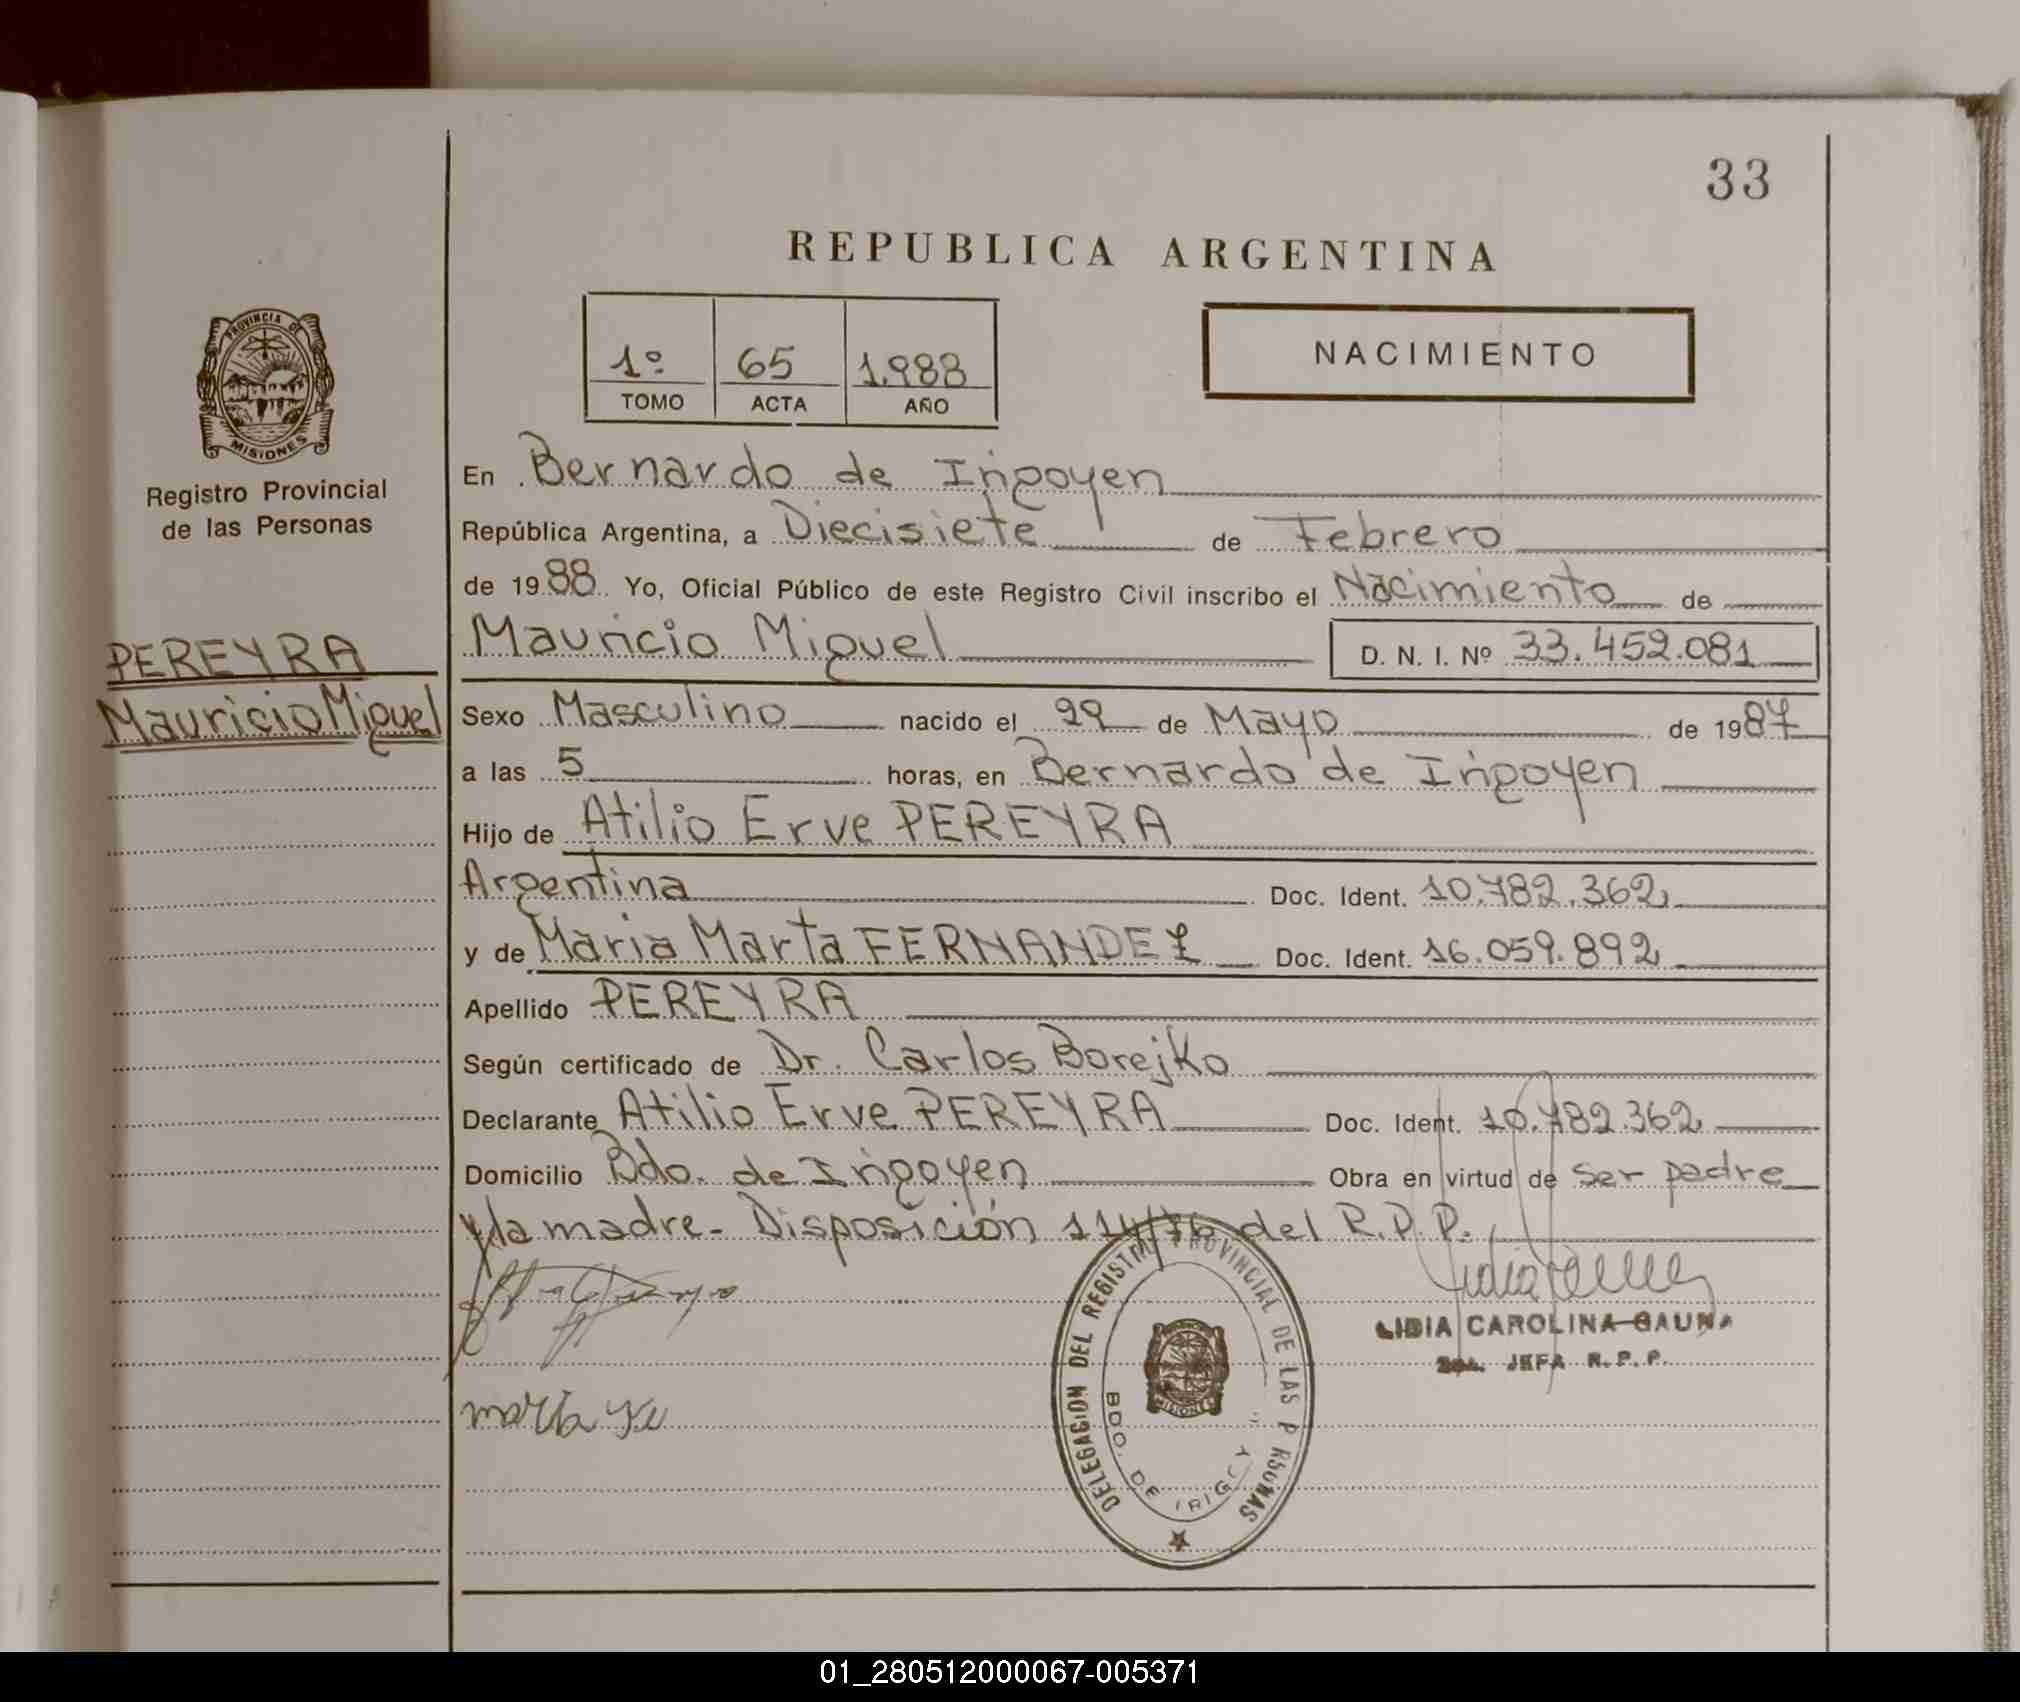 33
REPUBLICA ARGENTINA
PROVINCIA DE
MISIONES
Registro Provincial
de las Personas
1º 65 1.988
TOMO ACTA AÑO
NACIMIENTO
En Bernardo de Irigoyen
República Argentina, a Diecisiete de Febrero
de 1988 Yo, Oficial Público de este Registro Civil inscribo el Nacimiento de
Mauricio Miguel D. N. I. Nº 33.452.081
PEREYRA
Mauricio Miguel
Sexo Masculino nacido el 29 de Mayo de 1987
a las 5 horas, en Bernardo de Irigoyen
Hijo de Atilio Erve PEREYRA
Argentina Doc. Ident. 10.782.362
y de Maria Marta FERNANDEZ Doc. Ident. 16.059.892
Apellido PEREYRA
Según certificado de Dr. Carlos Borejko
Declarante Atilio Erve PEREYRA Doc. Ident. 10.782.362
Domicilio Bdo. de Irigoyen Obra en virtud de ser padre
y la madre - Disposición 114/76 del R.P.P.
LIDIA CAROLINA GAUNA
JEFA R.P.P.
DELEGACION DEL REGISTRO PROVINCIAL DE LAS P RSONAS
BDO. DE IRIGOY
MISIONES
01_280512000067-005371